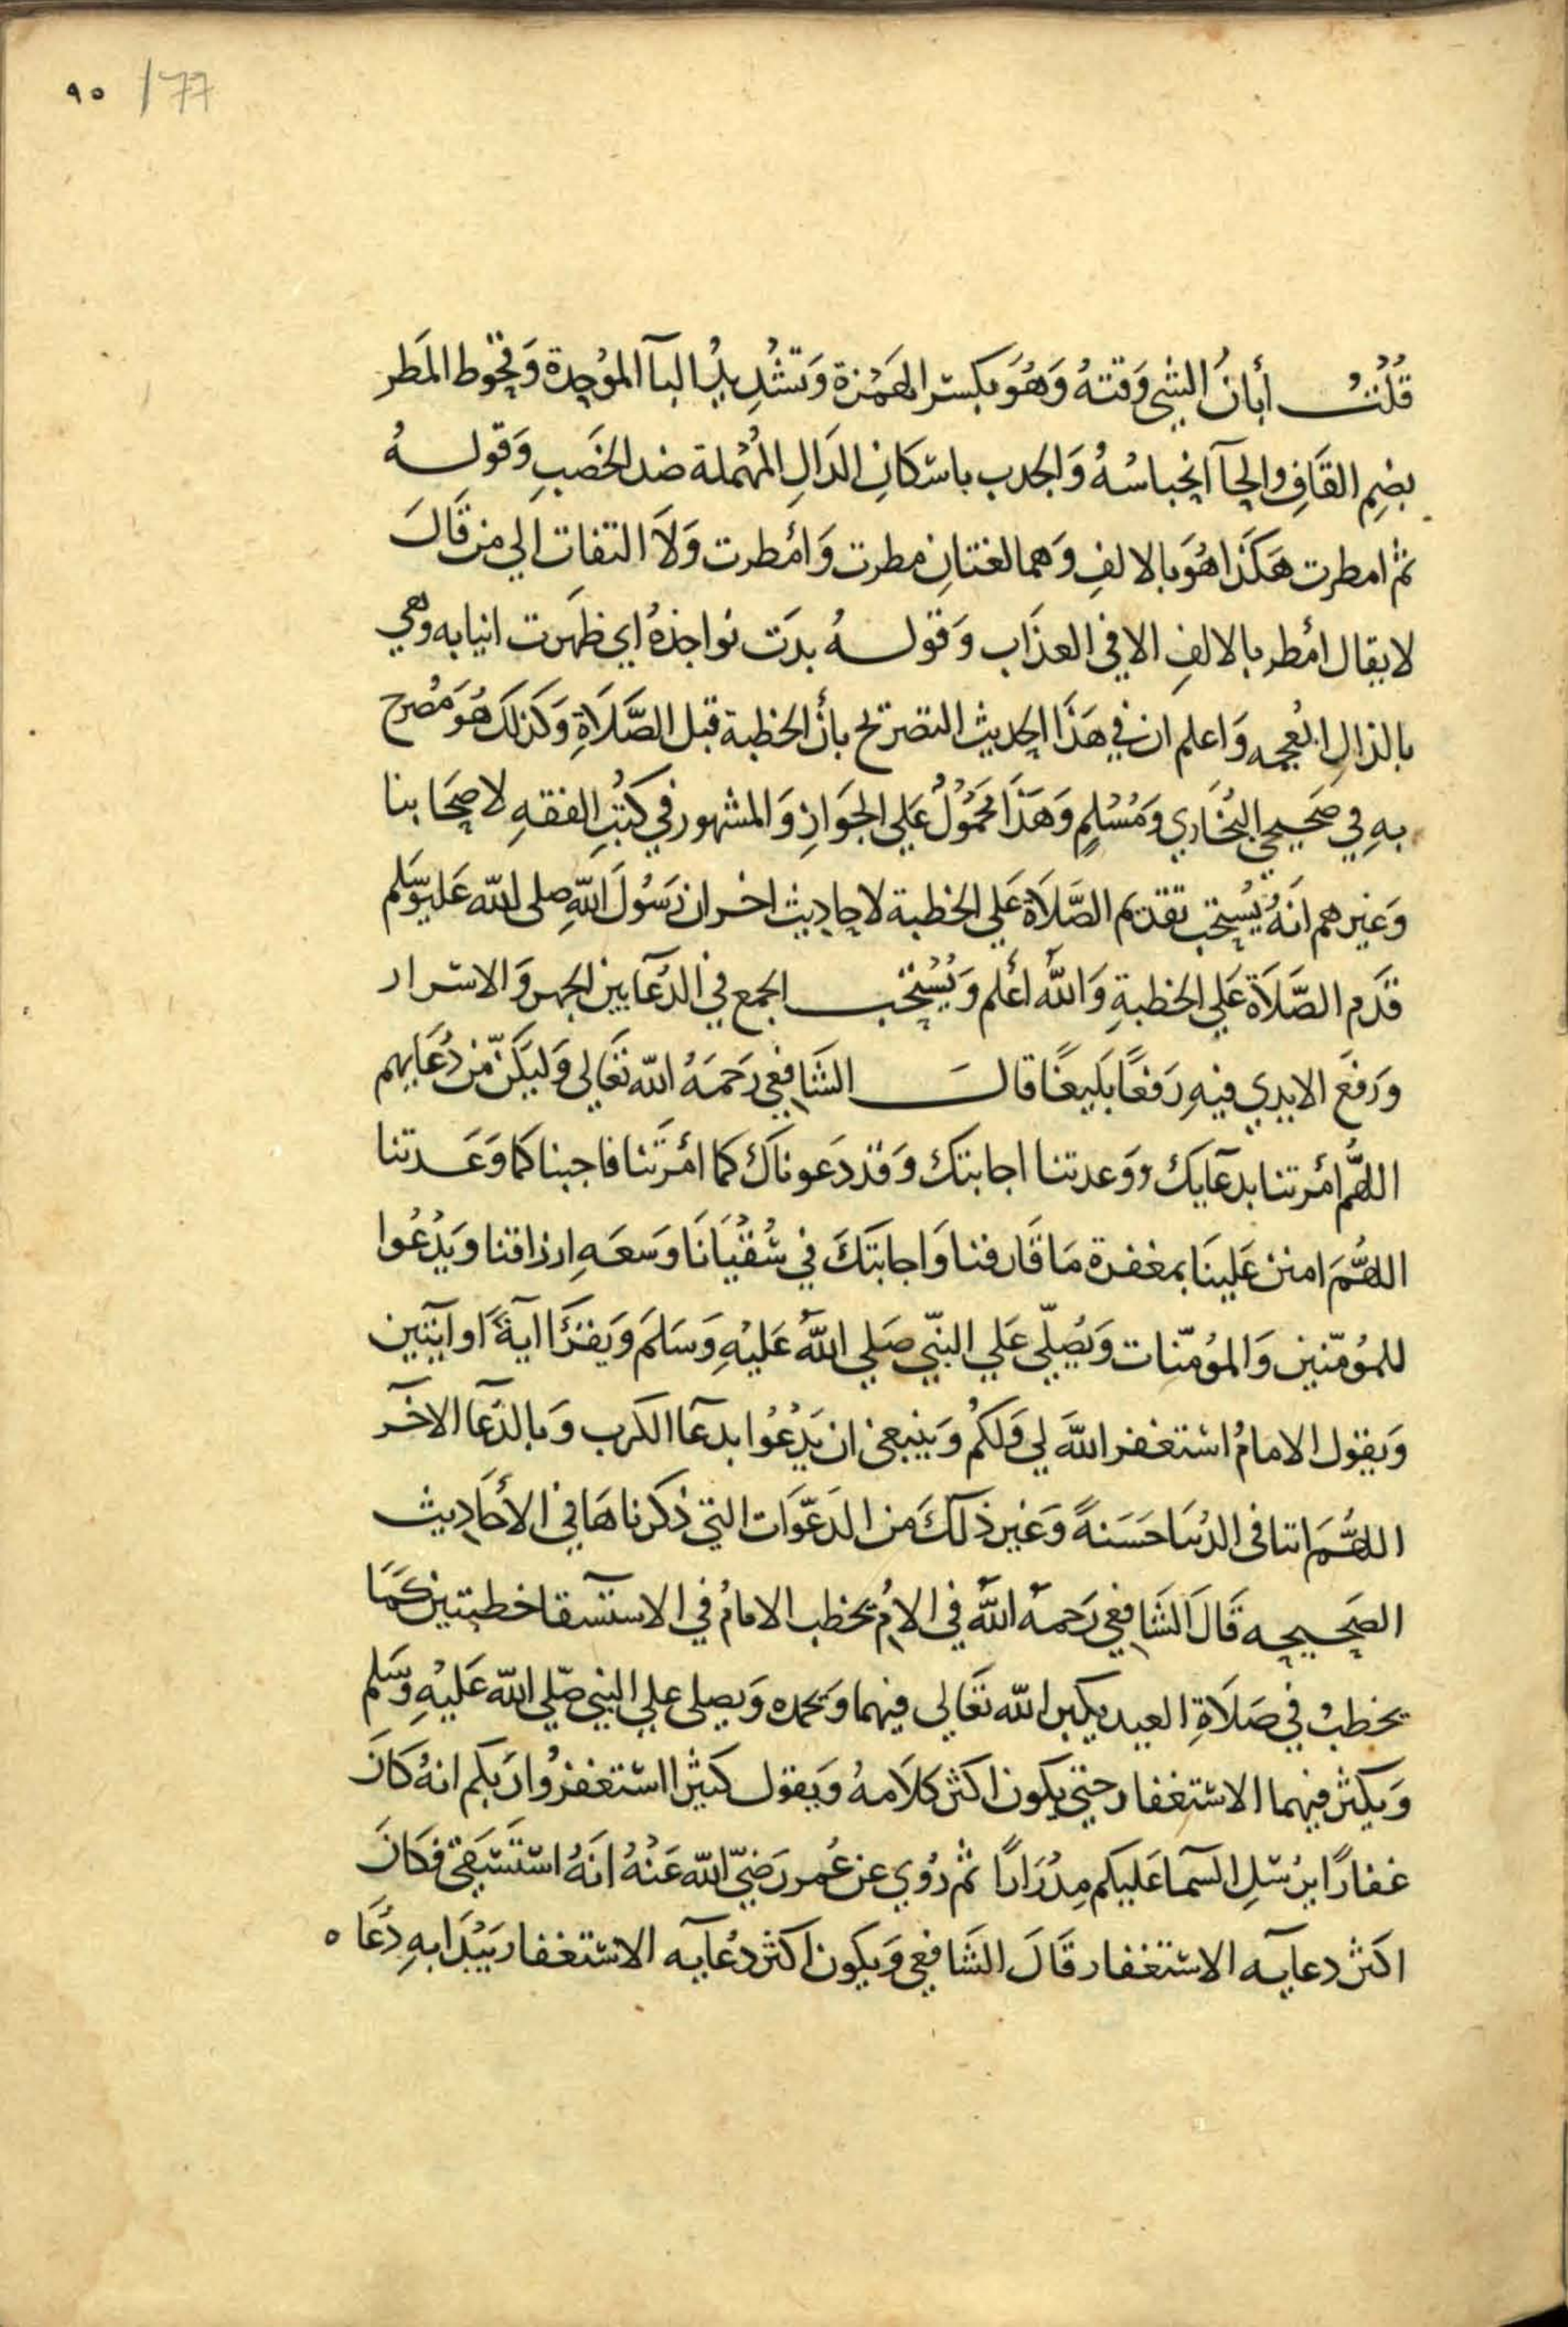 ٩٠ / 77
قُلْتُ أبانُ الشي وَقتهُ وَهُوَ بكسْر الهَمْزة وَتشْدِيدُ البآ الموُحدة وَقحُوط المَطر
بضِم القَافِ والحآ انحباسُهُ وَالجدب باسْكانِ الدَالِ المُهْملة ضد الخَصبِ وَقولهُ
ثم امطرت هَكَذا هُوَ بالالفِ وَهما لغتانِ مطرت وَأمْطرت وَلاَ التفات الي من قَالَ
لا يقال أمْطر بالالفِ الا في العذَاب وَقولهُ بدَت نواجذهُ اي ظهَرت انيابه وهي
بالذالِ المُعجمه وَاعلم ان في هَذَا الحديث التصرتح بأنَ الخطبة قبل الصَّلاَةِ وَكذلكَ هُوَ مُصَرح
بهِ في صَحيحي البُخَاري وَمُسْلمٍ وَهَذَا مَحمُوْلٌ عَلي الجوَازِ وَالمشهور في كتُبِ الفقهِ لاصحَابنا
وَغيرهم انَهُ يُستحَب تقديم الصَّلاَة عَلي الخطبة لاحاديث اخر ان رَسُولَ اللهِ صلى الله عَليهوَسَلم
قدَم الصَّلاَة عَلي الخطبةِ وَاللهُ أعْلم وَيُسْتحَب الجمع في الدُعآ بين الجهر وَالاسْرار
وَرَفعَ الايدي فيهِ رَفعًا بَليغًا قالَ الشَافعي رَحمَهُ الله تعَالى وَليَكنْ مّن دُعَايهم
اللهُمَ أمْرتنا بدعَايك ووَعدتنا اجابتك وَقد دَعوناكَ كما أمَرتَنا فاجبنا كما وَعَدتنا
اللهُمَ امنن عَلينَا بمغفرة مَا قَارفنا وَاجابتَكَ في سُقْيَانَا وَسَعَهِ ارزاقنا وَيَدْعُوا
للمُؤمّنين وَالمؤمّنات وَيُصَلّي عَلي النبّي صَلي اللهُ عَليْهِ وَسَلمَ وَيَقرَأ اآيَةً او اَيتين
وَيقول الامامُ اسْتغفر اللهَ لي وَلكمُ وَينبغى ان يَدْعُوا بدعآ الكرب وَبالدّعَآ الاخَر
اللهُمَ اتنا في الدُنيَا حَسَنةً وَغير ذلكَ من الدَعَوَات التي ذكرناهَا في الأحَاديث
الصَحيحه قَالَ الشَافعي رَحمهُ اللهُ في الام يخطب الامامُ في الاستسْقا خطبتين كمَا
يخطبْ في صَلاَةِ العيد يكبر الله تعَالى فيهما وَيَحمده وَيصلى علي النبي صَلي الله عَليْهِ وَسَلم
وَيكثر فيهما الاسْتغفار حتي يكون اكثر كلاَمهُ وَيقول كثيْرا اسْتغفرُوا رَبكم انهُ كانَ
غفارًا يرُسْلِ السَّما عَليكم مِدْرَارًا ثم رُوي عن عُمر رَضيّ الله عَنْهُ انَهُ اسْتَسْقيَ فكَانَ
اكثر دعايه الاسْتغفار قَالَ الشَافعي وَيكون اكثر دعآيه الاسْتغفار يَبْدَا بهِ دُعَا ه